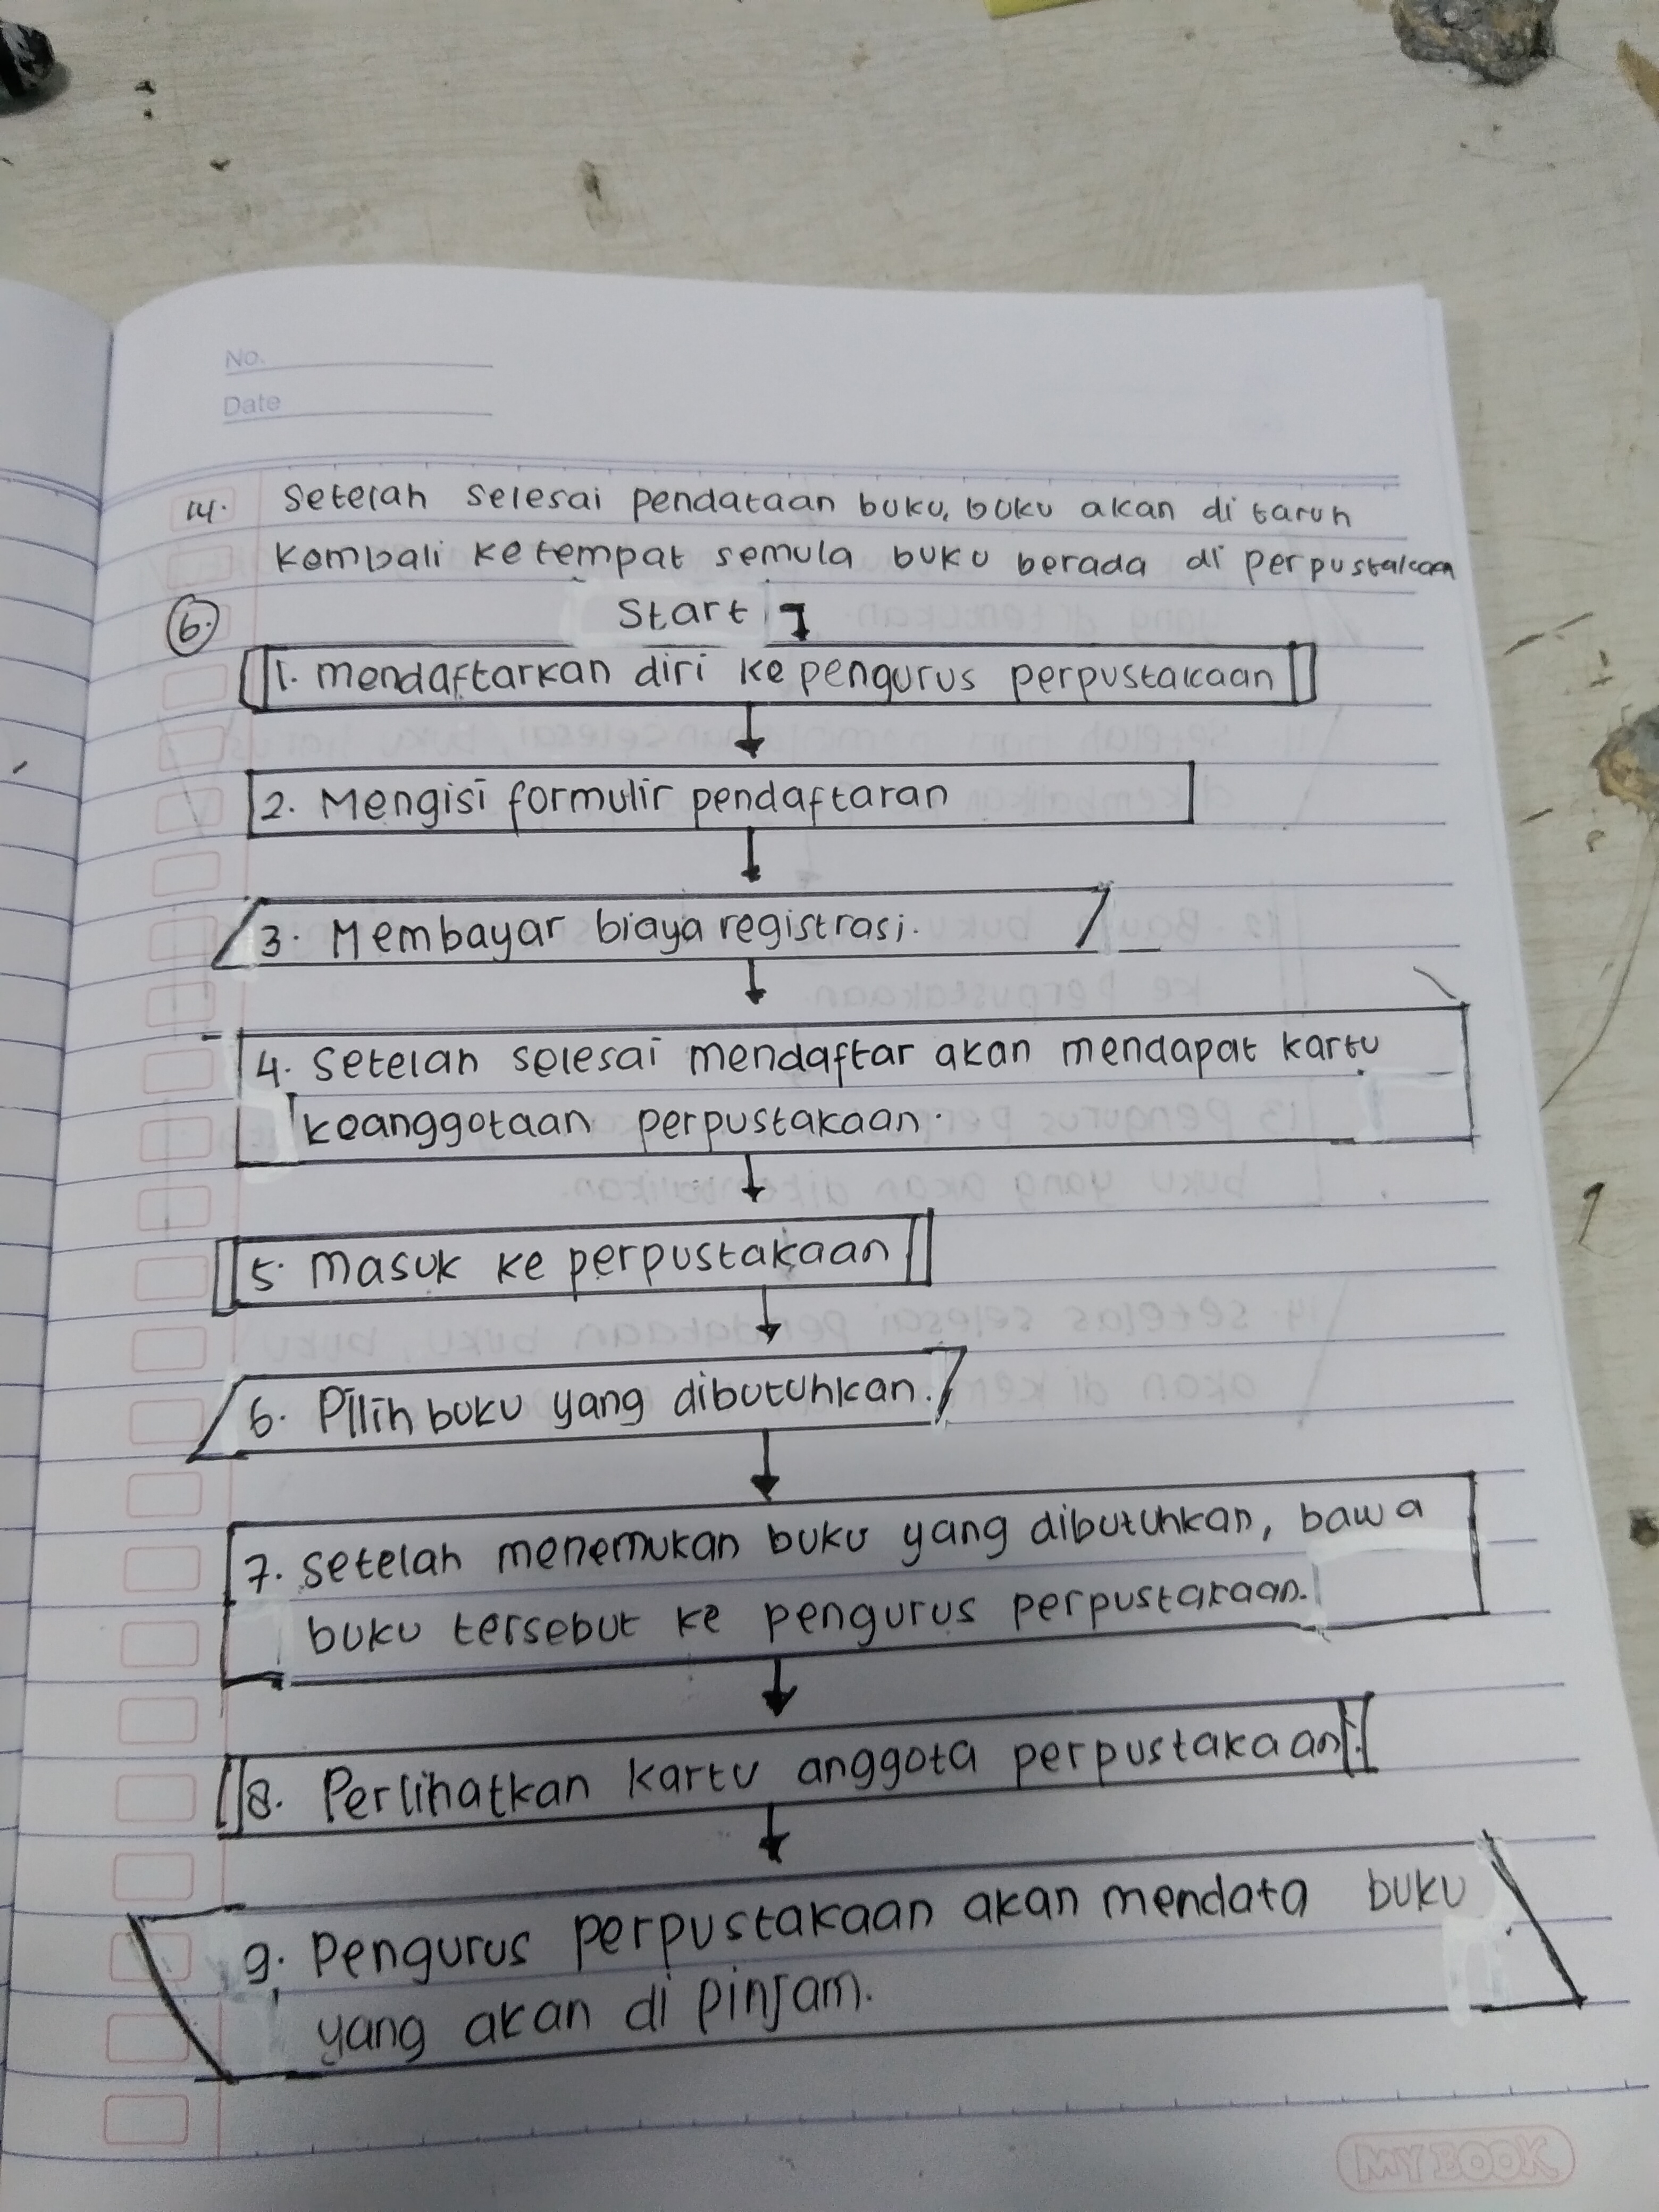 No.
Date
14. Setelah selesai pendataan buku, buku akan di taruh
kembali ke tempat semula buku berada di perpustakaan
6. Start
1. mendaftarkan diri ke pengurus perpustakaan
2. Mengisi formulir pendaftaran
3. Membayar biaya registrasi.
4. Setelah selesai mendaftar akan mendapat kartu
keanggotaan perpustakaan.
5. Masuk ke perpustakaan
6. Pilih buku yang dibutuhkan.
7. Setelah menemukan buku yang dibutuhkan, bawa
buku tersebut ke pengurus perpustakaan.
8. Perlihatkan kartu anggota perpustakaan.
9. Pengurus perpustakaan akan mendata buku
yang akan di pinjam.
MY BOOK